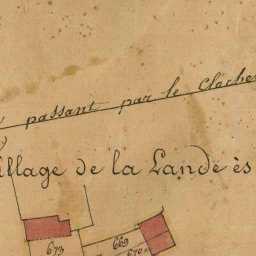 passant par le Cloche
illage de la Lande ès
673
669
670